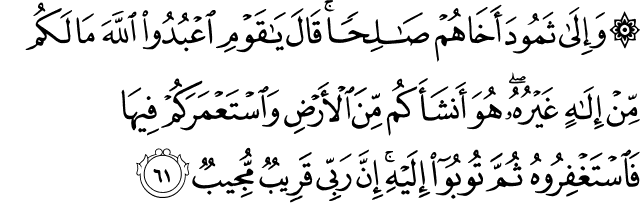 ۞ وَإِلَىٰ ثَمُودَ أَخَاهُمْ صَـٰلِحًا ۚ قَالَ يَـٰقَوْمِ ٱعْبُدُوا۟ ٱللَّهَ مَا لَكُم
مِّنْ إِلَـٰهٍ غَيْرُهُۥ ۖ هُوَ أَنشَأَكُم مِّنَ ٱلْأَرْضِ وَٱسْتَعْمَرَكُمْ فِيهَا
فَٱسْتَغْفِرُوهُ ثُمَّ تُوبُوٓا۟ إِلَيْهِ ۚ إِنَّ رَبِّى قَرِيبٌ مُّجِيبٌ ٦١